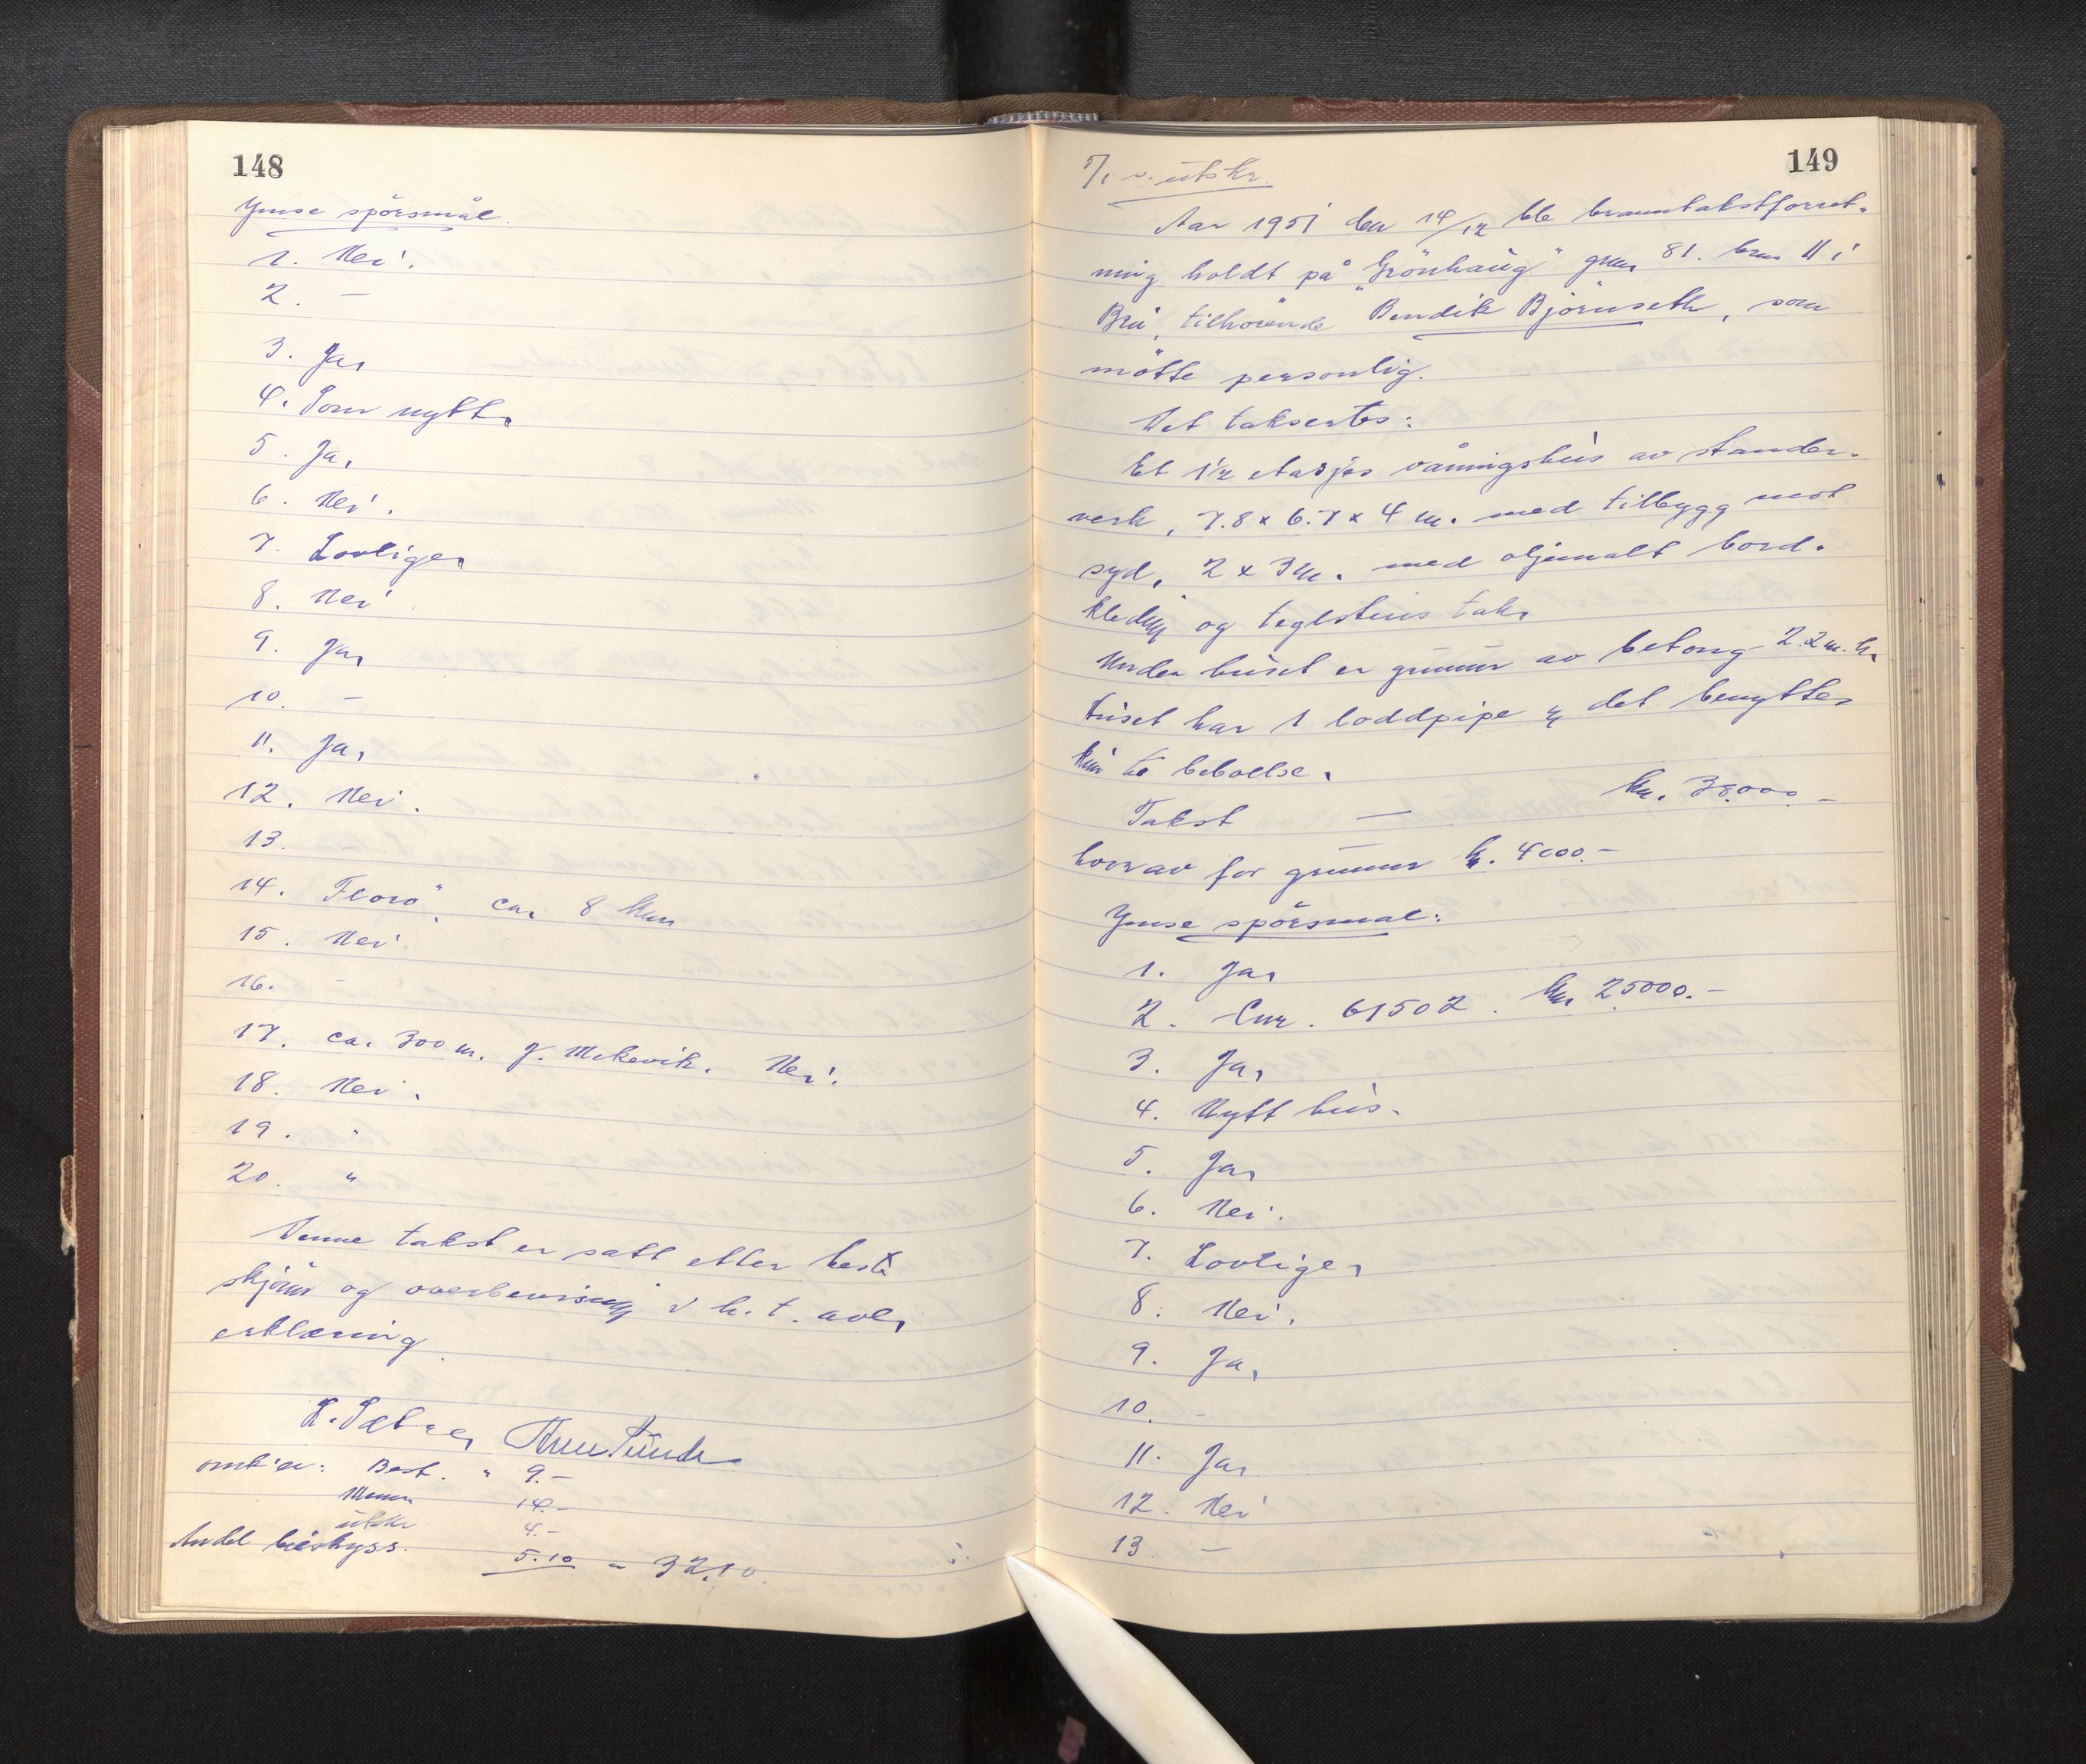 148
Ymse spörsmål.
1. Nei.
2. –
3. Ja,
4. Som nytt,
5. Ja,
6. Nei.
7. Lovlige,
8. Nei
9. Ja,
10. –
11. Ja,
12. Nei.
13. –
14. Florö, ca. 8 km
15. Nei
16. –
17. ca. 300 m. J. Mekevik. Nei.
18. Nei.
19. "
20. "
Denne takst er satt etter beste
skjönn og overbevisning i h. t. avl,
erklæring.
L. Sæbre,
omk'er: Best. " 9.–
14.–
utskr 4.–
Andel bilskyss. 5.10 = 32.10.
149
5/1 s. utskr.
Aar 1951 den 14/12 ble branntakstforret-
ning holdt på "Grönhaug" gnr, 81. bnr 11 i
Bru, tilhörende Bendik Björnseth, som
mötte personlig.
Det taksertes:
Et 1½ etasjes våningshus av stander-
verk, 7.8 x 6.7 x 4 m. med tilbygg mot
syd, 2 x 3 m. med oljemalt bord-
kledning og teglsteins tak,
Under huset er grunnmur av betong 2.2 m. h,
huset har 1 loddpipe og det benyttes
kun to beboelse.
Takst – kr. 38.000.–
hvorav for grunnmur kr. 4000.–
Ymse spörsmal:
1. Ja,
2. Cnr. 61502. kr, 25000.–
3. Ja,
4. Nytt hus.
5. Ja,
6. Nei.
7. Lovlige,
8. Nei.
9. Ja,
10. –
11. Ja,
12. Nei
13 –